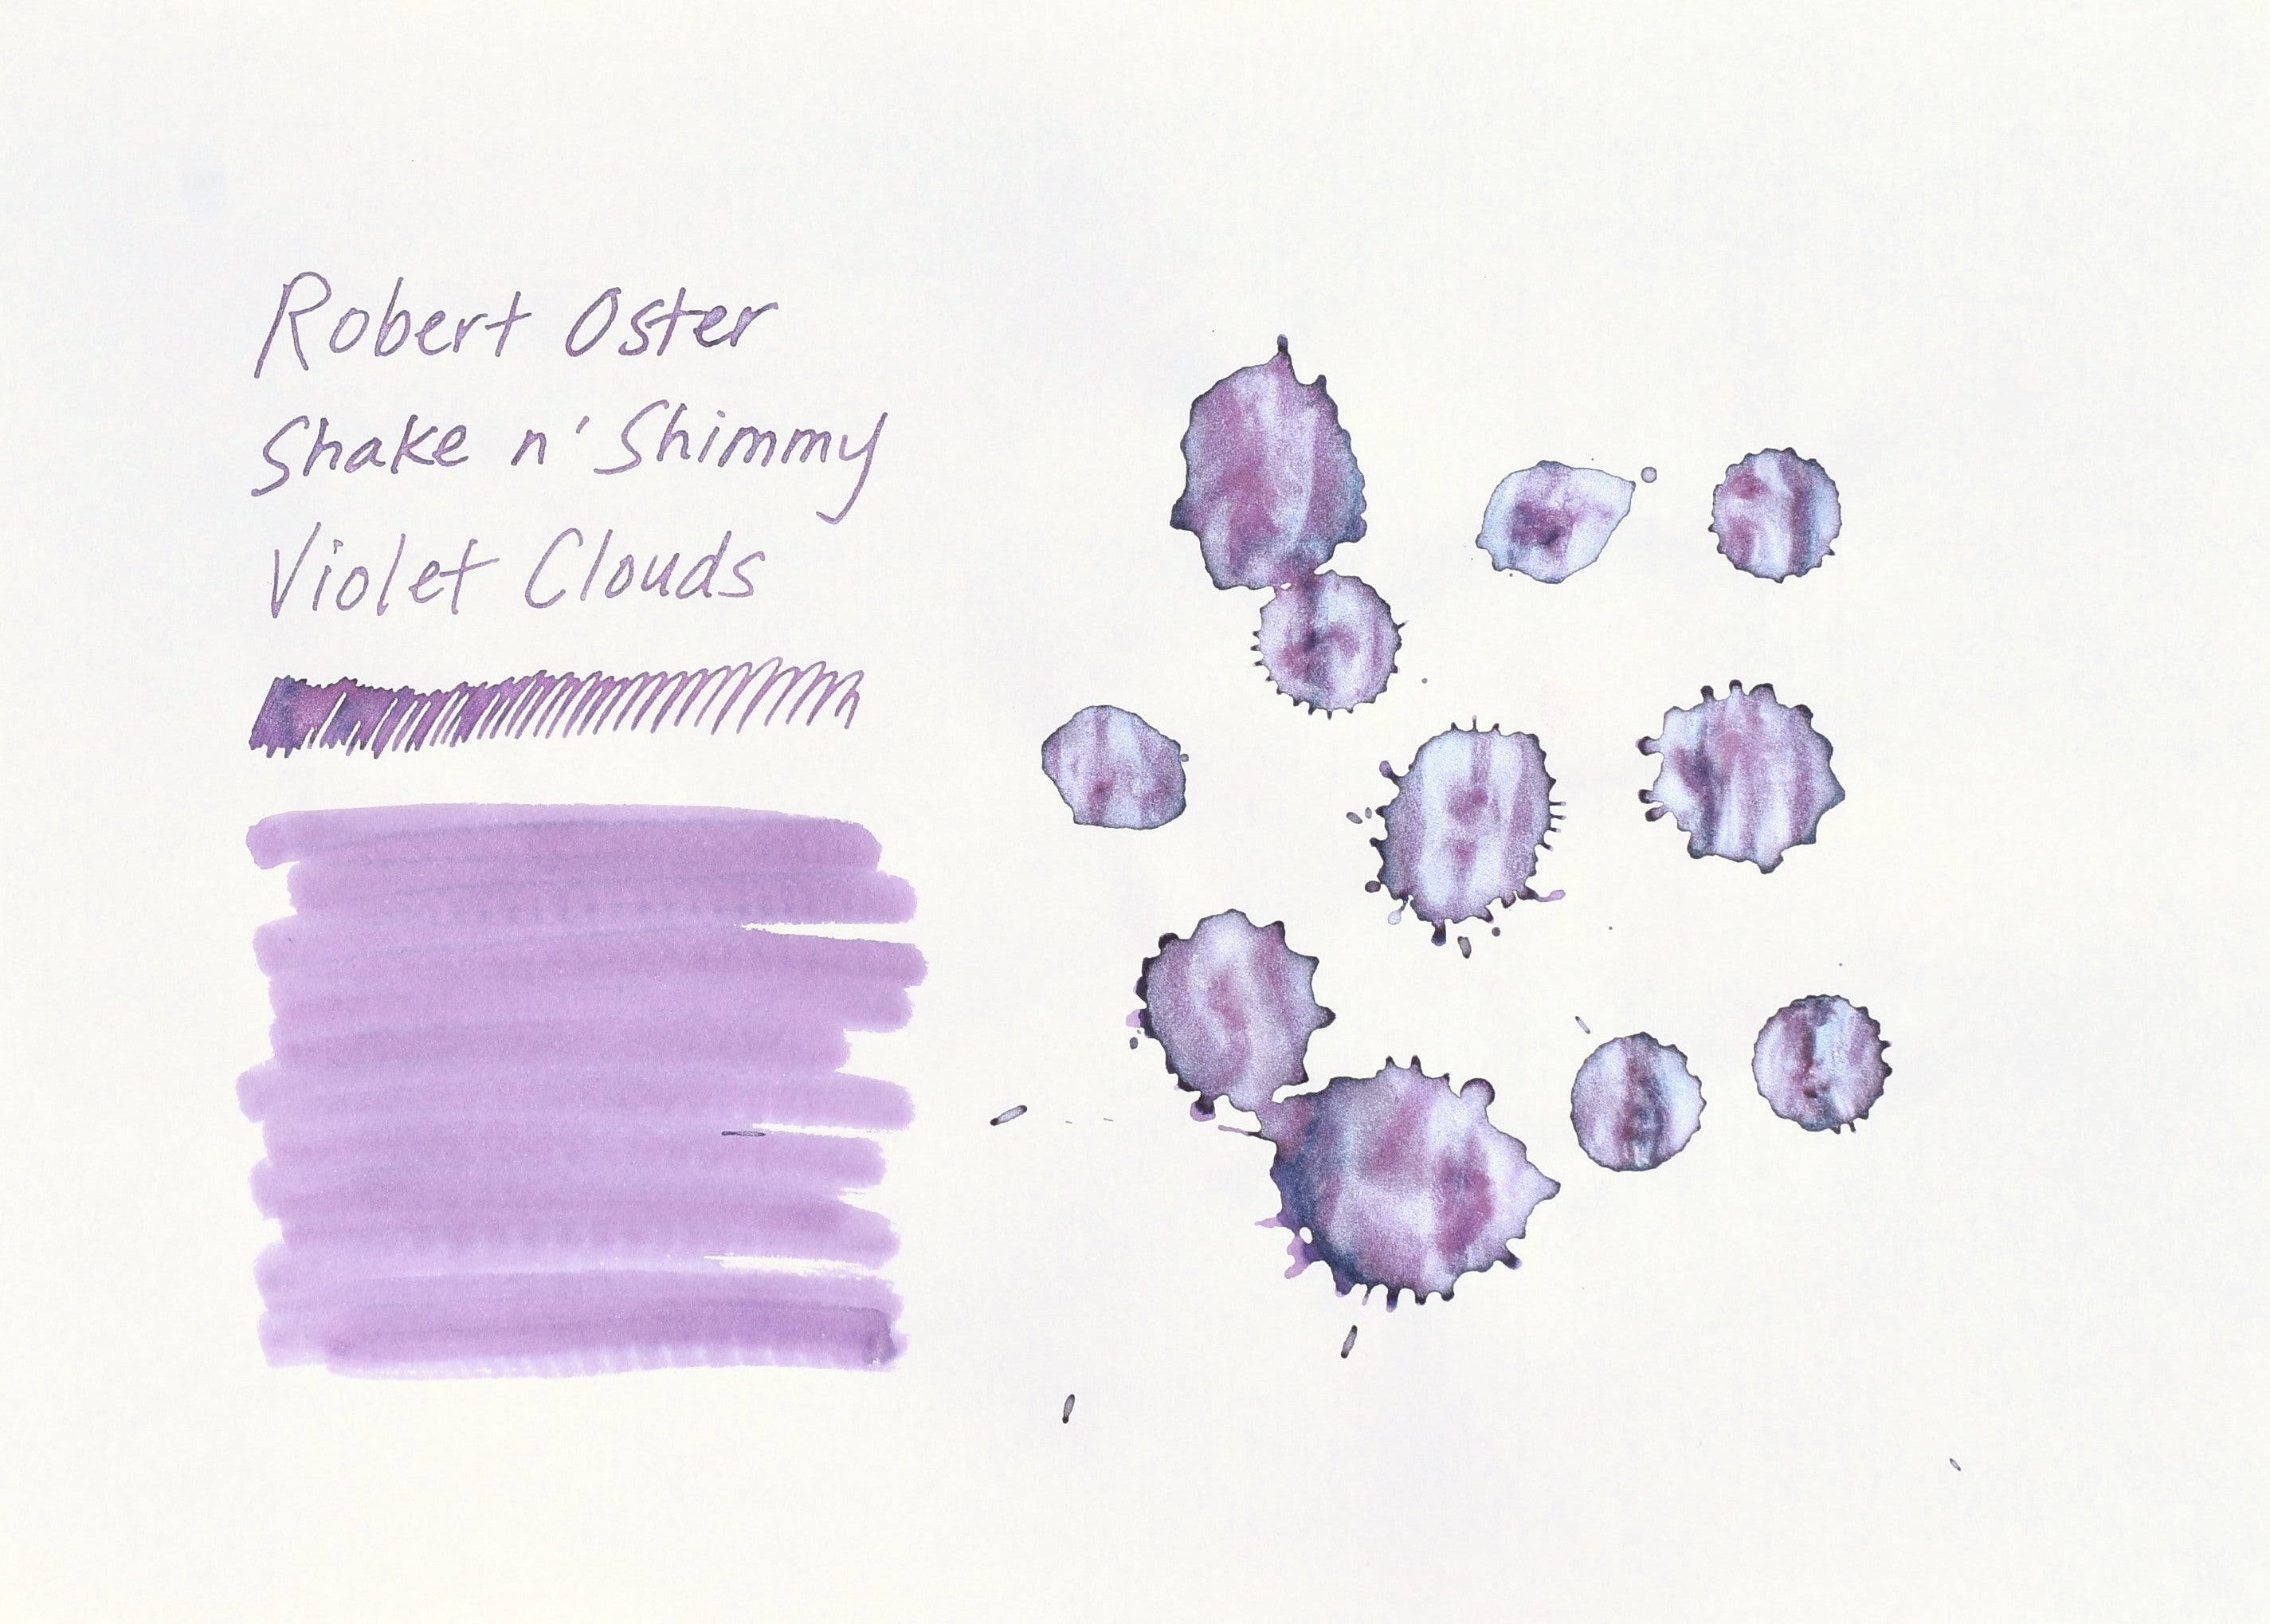 Robert Oster
Shake n' Shimmy
Violet Clouds